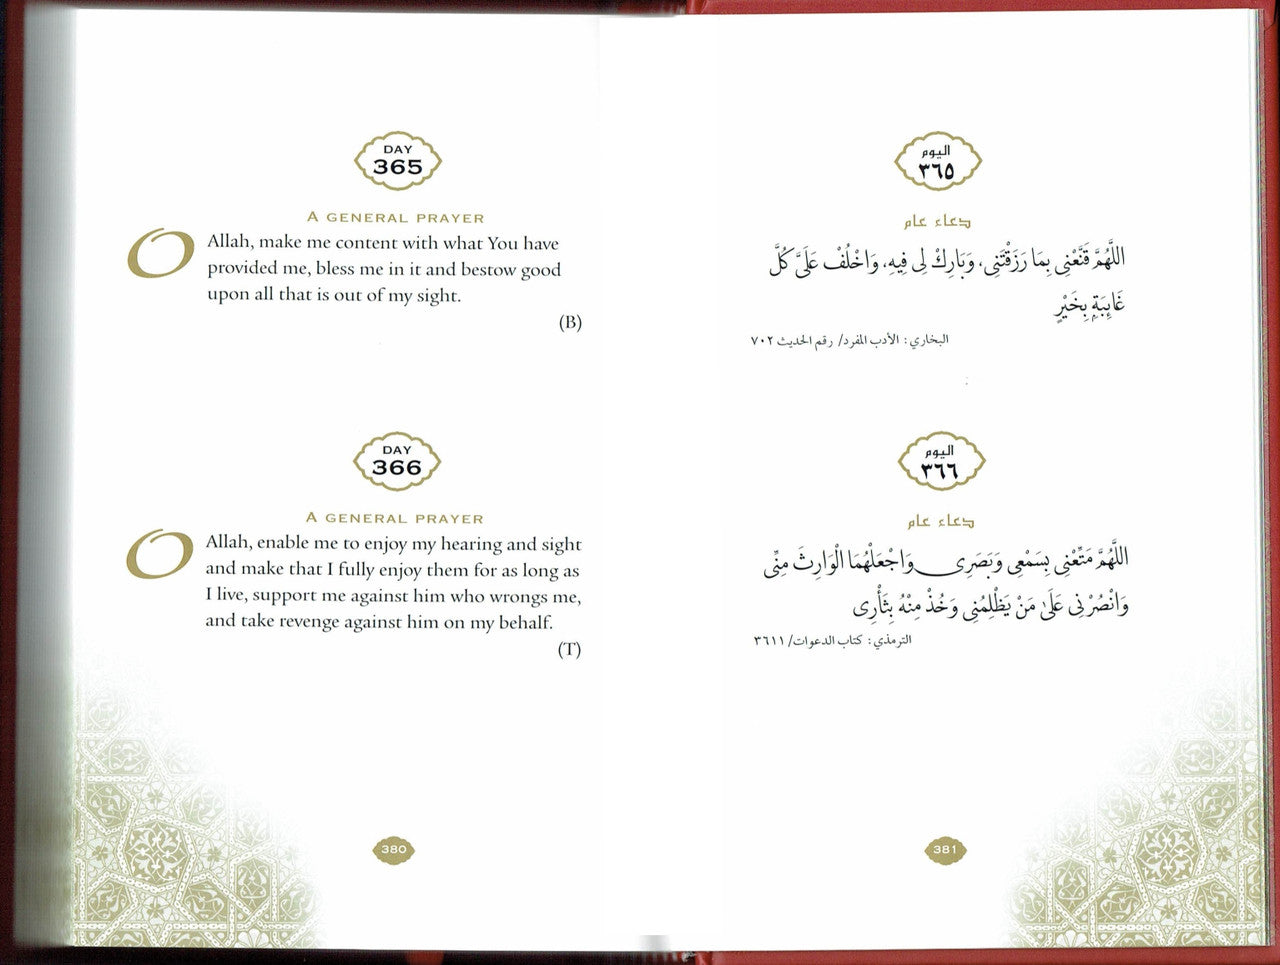 DAY
365
A GENERAL PRAYER
O Allah, make me content with what You have
provided me, bless me in it and bestow good
upon all that is out of my sight.
(B)
DAY
366
A GENERAL PRAYER
O Allah, enable me to enjoy my hearing and sight
and make that I fully enjoy them for as long as
I live, support me against him who wrongs me,
and take revenge against him on my behalf.
(T)
380
اليوم
٣٦٥
دعاء عام
اللَّهُمَّ قَنِّعْنِي بِمَا رَزَقْتَنِي، وَبَارِكْ لِي فِيهِ، وَاخْلُفْ عَلَيَّ كُلَّ
غَايِبَةٍ بِخَيْرٍ
البخاري: الأدب المفرد/ رقم الحديث ٧٠٢
اليوم
٣٦٦
دعاء عام
اللَّهُمَّ مَتِّعْنِي بِسَمْعِي وَبَصَرِي وَاجْعَلْهُمَا الْوَارِثَ مِنِّي
وَانْصُرْنِي عَلَىٰ مَنْ يَظْلِمُنِي وَخُذْ مِنْهُ بِثَأْرِي
الترمذي: كتاب الدعوات/ ٣٦١١
381